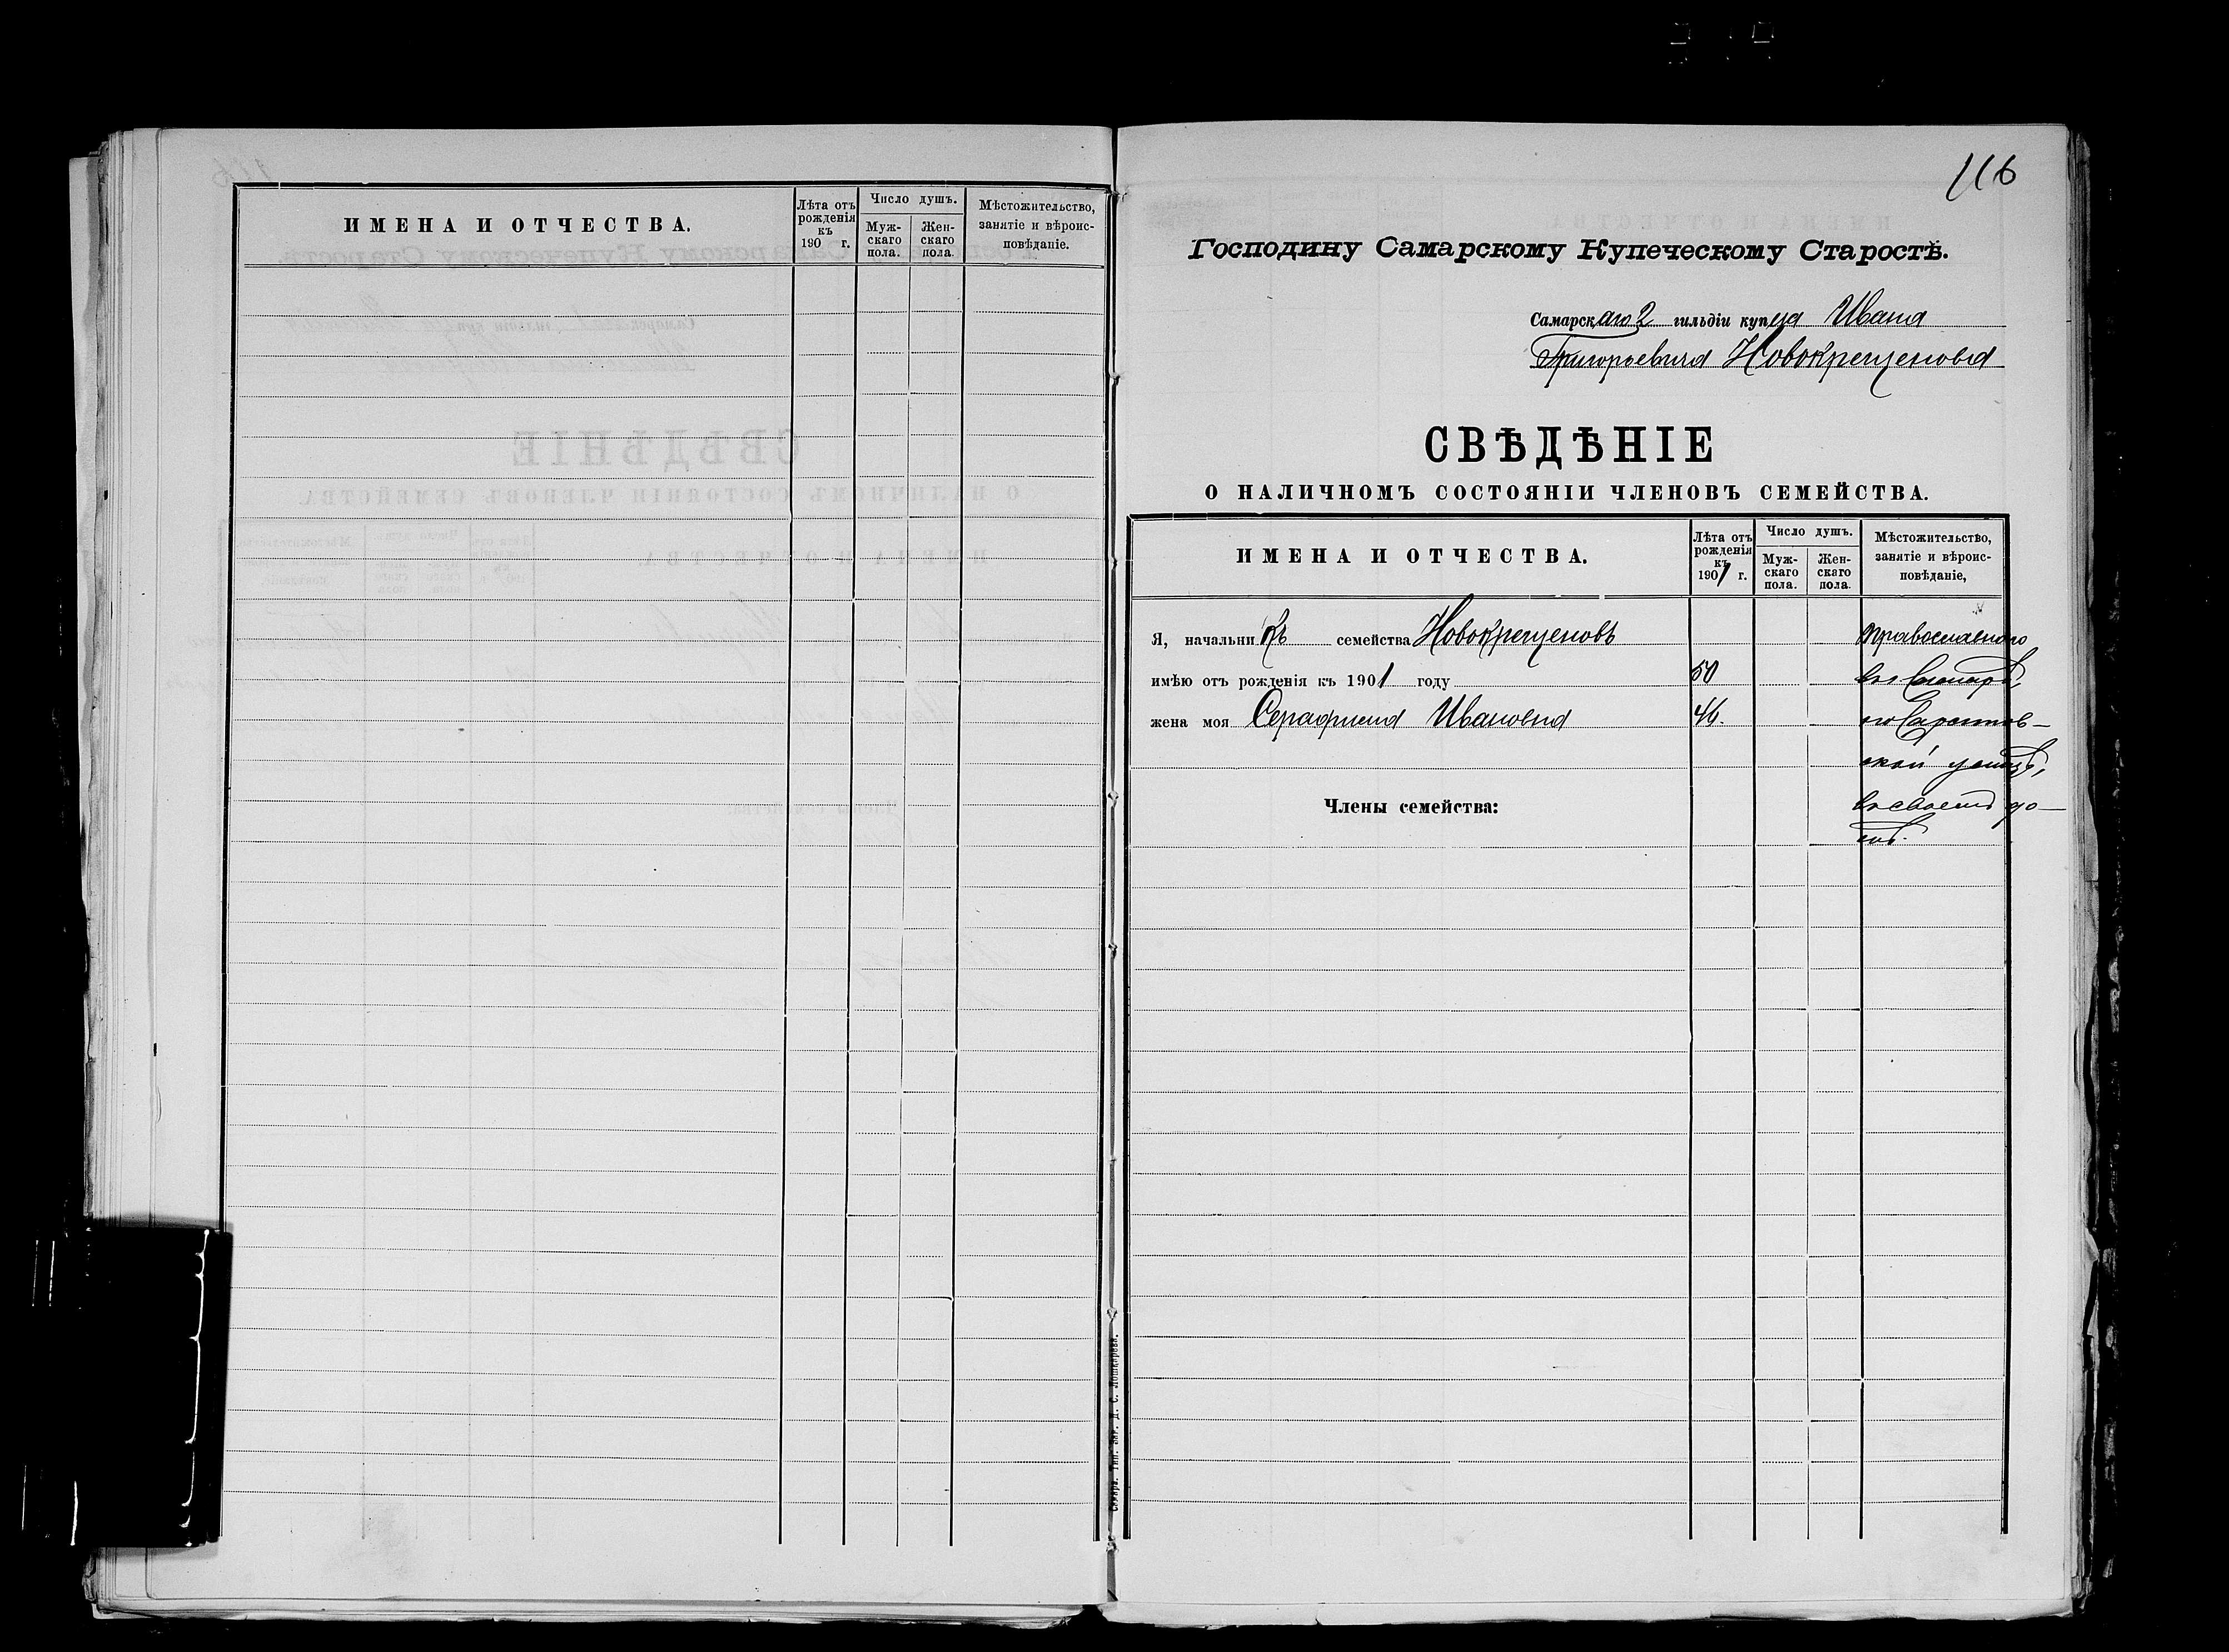 ИМЕНА И ОТЧЕСТВА.
Лѣта отъ рожденія къ 190 г.
Число душъ.
Муж-скаго пола.
Жен-скаго пола.
Мѣстожительство, занятіе и вѣроис-повѣданіе.
116
Господину Самарскому Купеческому Старостѣ.
Самарскаго 2 гильдіи купца Ивана
Григорьевича Новокрещенова
СВѢДѢНІЕ
О НАЛИЧНОМЪ СОСТОЯНІИ ЧЛЕНОВЪ СЕМЕЙСТВА.
ИМЕНА И ОТЧЕСТВА.
Лѣта отъ рожденія къ 1901 г.
Число душъ.
Муж-скаго пола.
Жен-скаго пола.
Мѣстожительство, занятіе и вѣроис-повѣданіе,
Я, начальникъ семейства Новокрещеновъ православнаго
имѣю отъ рожденія къ 1901 году 50 въ Самарѣ,
жена моя Серафима Ивановна 46. по Саратов-
ской улицѣ,
Члены семейства: въ своемъ до-
мѣ.
Самара. Тип. Зав. Д. С. Пошкарева.